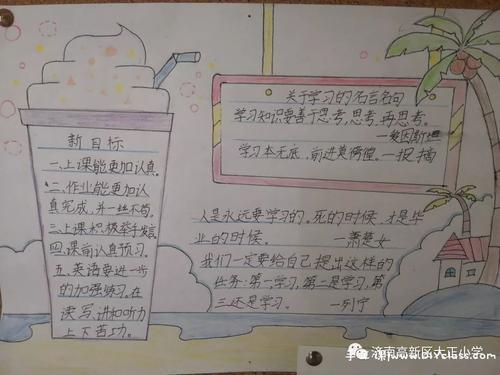 新目标
一.上课能更加认真.
二.作业能更加认
真完成,并一丝不苟.
三.上课积极举手发言
四.课前认真预习.
五.英语要进一步
的加强练习.在
读、写、讲和听力
上下苦功.
关于学习的名言名句
学习知识要善于思考,思考,再思考。
—爱因斯坦
学习本无底,前进莫徬徨。—报摘
人是永远要学习的。死的时候,才是毕
业的时候。 —萧楚女
我们一定要给自己提出这样的
任务:第一学习,第二是学习,第
三还是学习。 —列宁
济南高新区大正小学
www.DIYclass.com